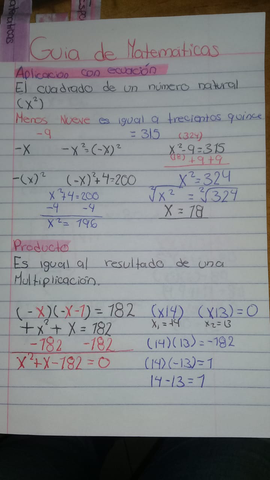 Guia de Matemáticas
Aplicacion con ecuación
El cuadrado de un número natural
(x²)
Menos Nueve es igual a trecientos quince
-9 = 315 (324)
-x -x²=(-x)² x²-9=315
+9+9
-(x)² (-x)²+4=200 x²=324
x²+4=200 ²√x² = ²√324
-4 -4 x = 18
x²= 196
Producto
Es igual al resultado de una
Multiplicación.
(-x)(-x-1)=182 (x14) (x13)=0
+x²+x=182 x₁=+4 x₂=13
-182 -182 (14)(13)=-182
x²+x-182=0 (14)(-13)=1
14-13=1